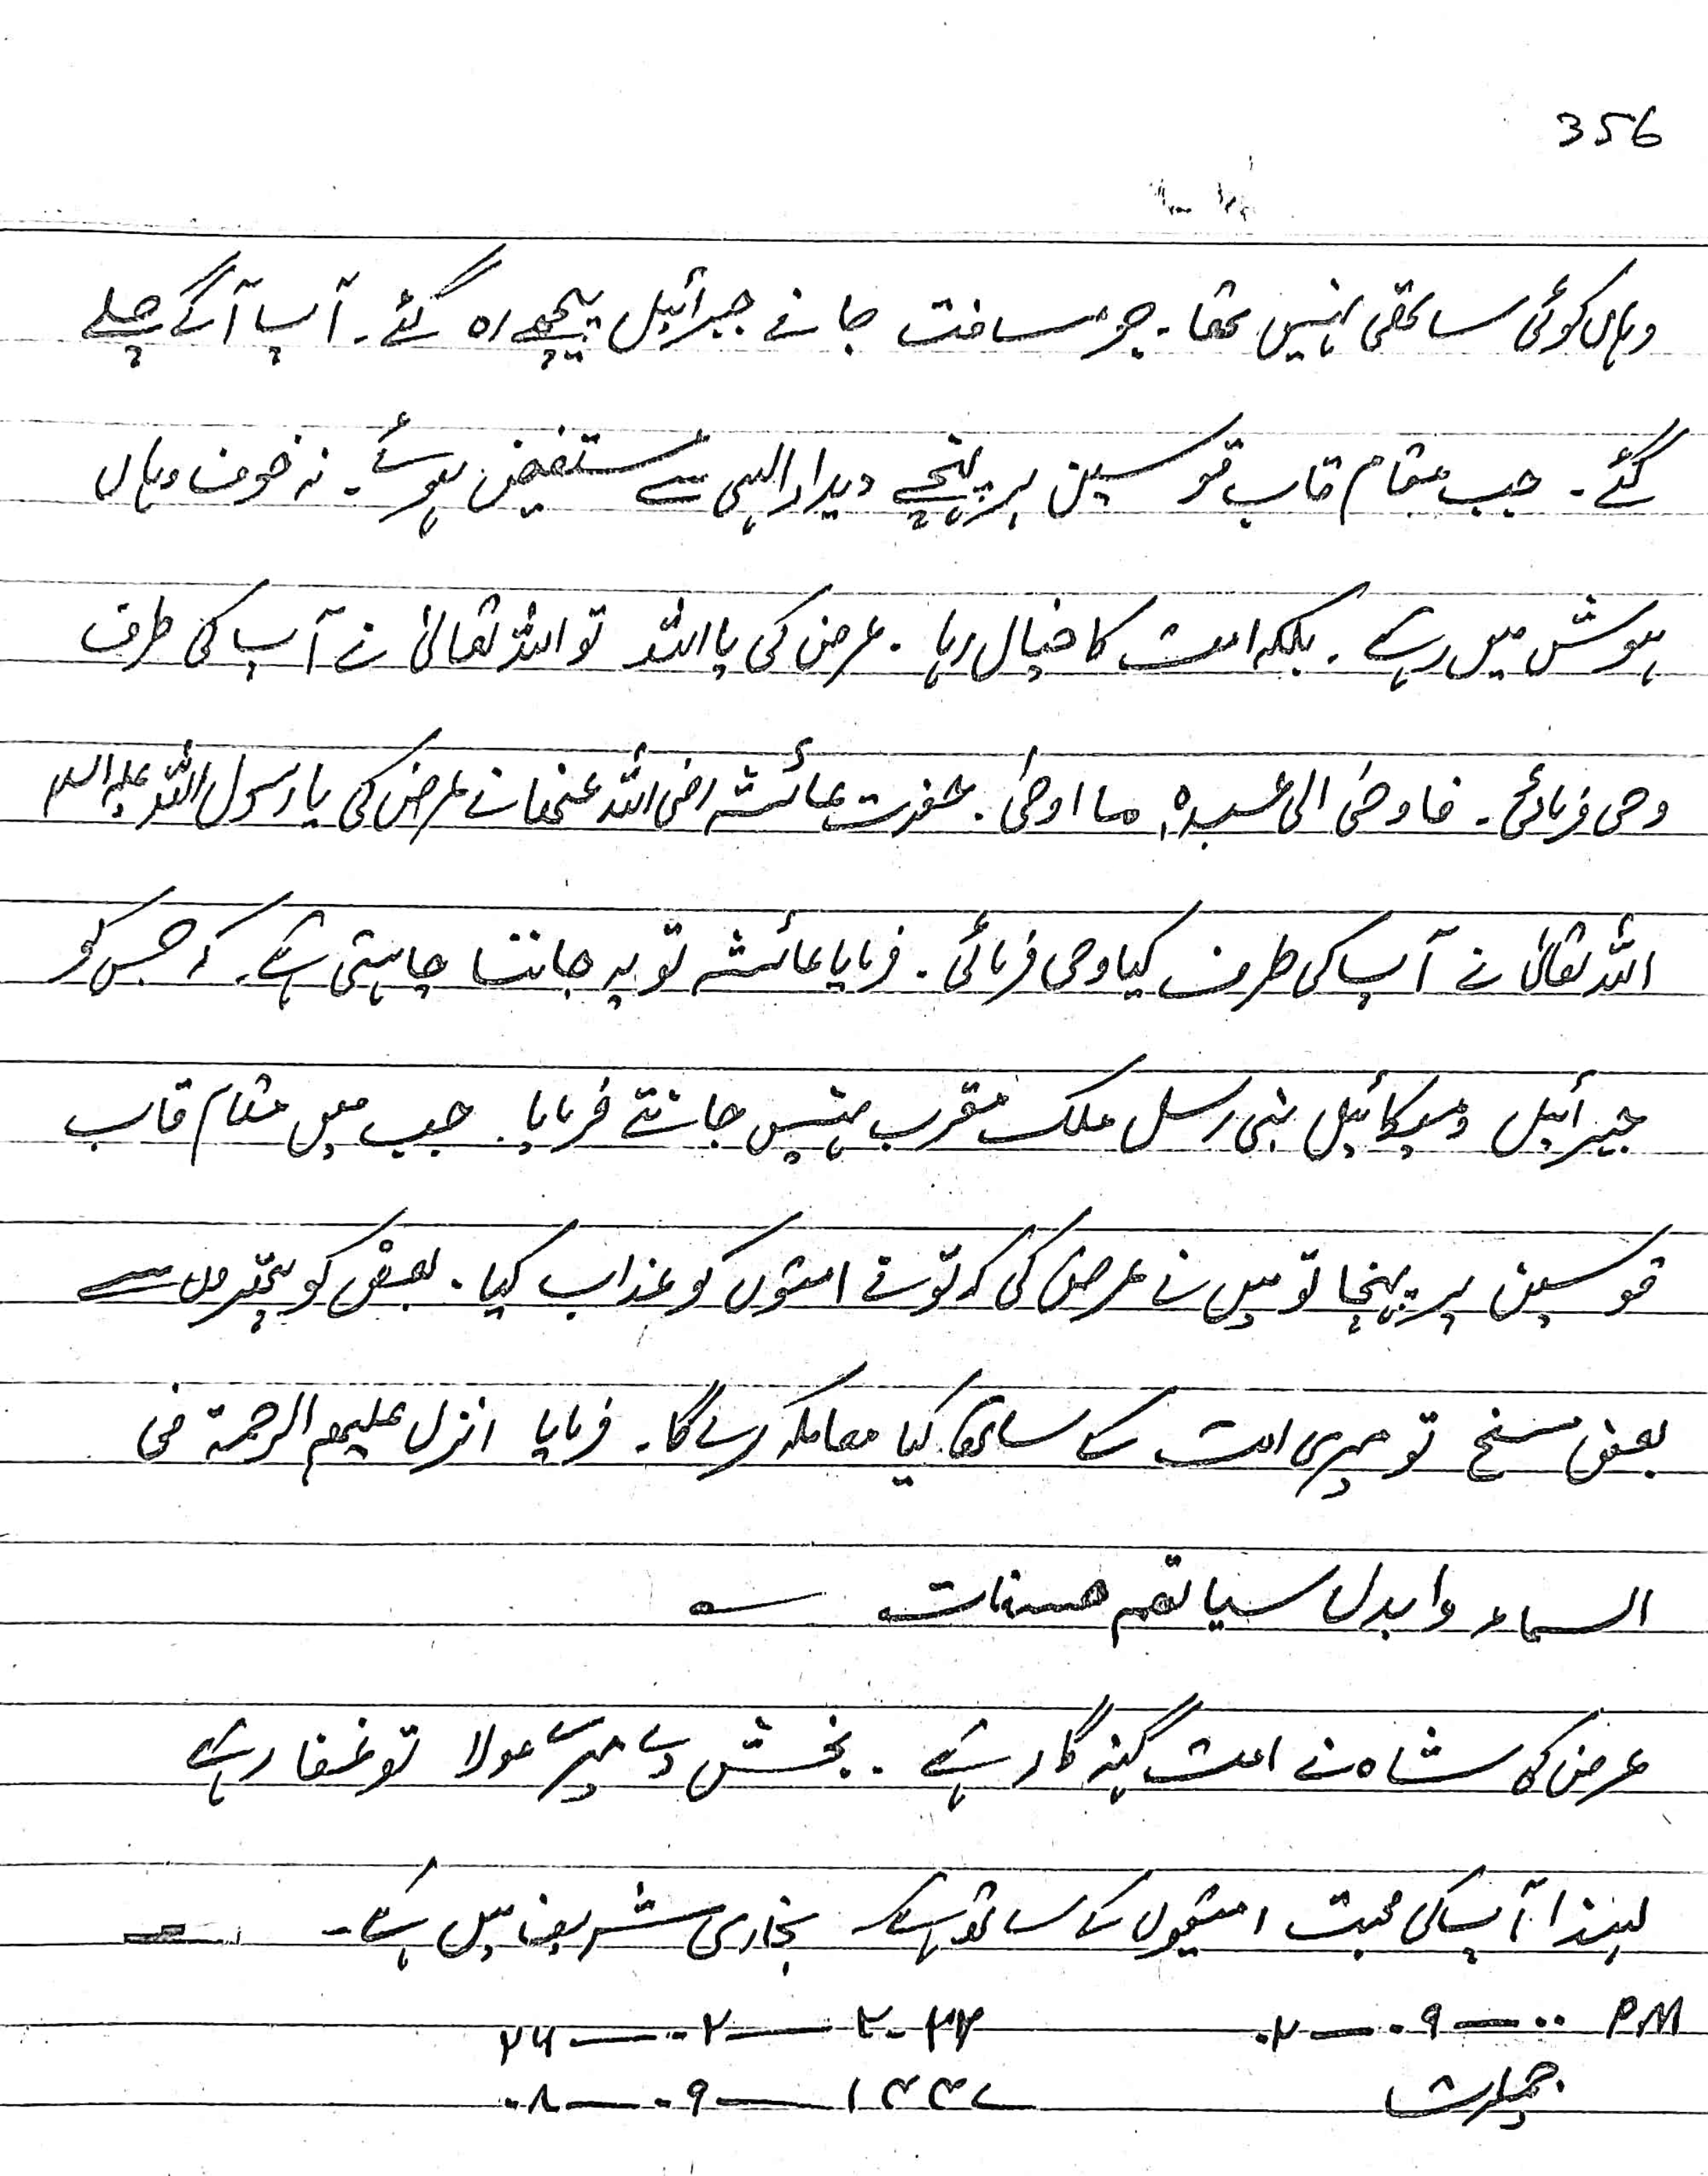 356
وہاں کوئی ساتھی نہیں تھا۔ جو مسافت جانے جبرائیل پیچھے رہ گئے۔ آپ آگے چلے
گئے۔ جب مقام قاب قوسین پر پہنچے دیدار الہی سے مستفیض ہوئے۔ نہ خوف وہاں
ہوش میں رہے۔ بلکہ امت کا خیال رہا۔ عرض کی یا اللہ تو اللہ تعالیٰ نے آپ کی طرف
وحی فرمائی۔ فاوحیٰ الی عبدہ ما اوحیٰ۔ حضرت عائشہ رضی اللہ عنھا نے عرض کی یا رسول اللہ علیہ السلام
اللہ تعالیٰ نے آپ کی طرف کیا وحی فرمائی۔ فرمایا عائشہ تو یہ جاننا چاہتی ہے۔ کہ جس کو
جبرائیل و میکائیل نبی رسل ملک مقرب نہیں جانتے فرمایا۔ جب میں مقام قاب
قوسین پر پہنچا تو میں نے عرض کی کہ تو نے امتوں کو عذاب کیا۔ بعض کو پتھروں سے
بعض مسخ تو میری امت کے ساتھ کیا معاملہ کرے گا۔ فرمایا انزل علیھم الرحمۃ فی
السماء وابدل سیاتھم حسنات
عرض کی شاہ نے امت گنہ گار ہے۔ بخش دے میرے مولا تو غفار ہے
لہذا آپ کی محبت امتیوں کے ساتھ ہے بخاری شریف میں ہے۔
PM ۰۰—۰۹—۰۲ ۲۰۲۴—۰۲—۲۶
جمعرات ۱۴۴۷—۰۹—۰۸